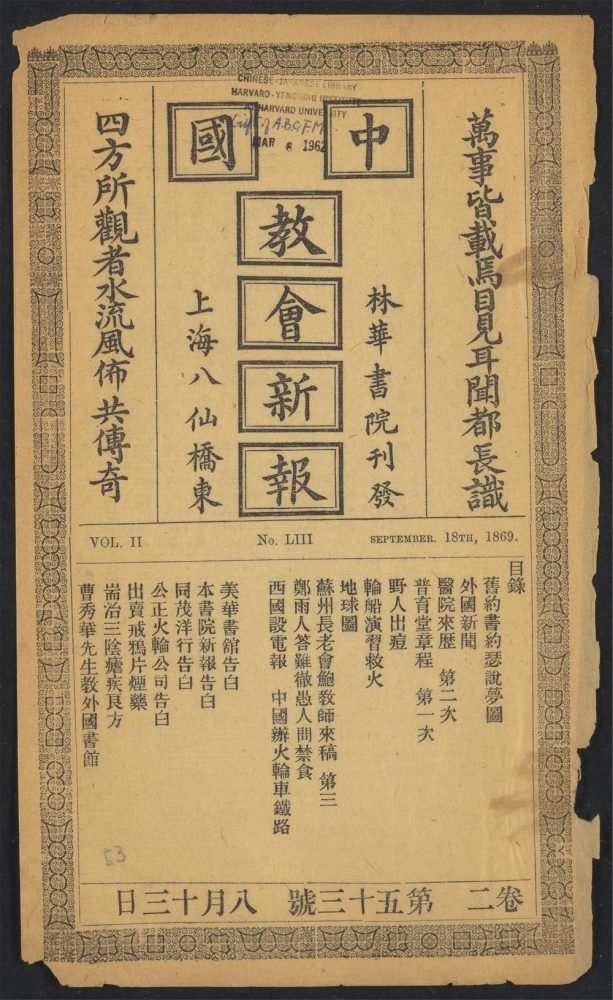 CHINESE-JAPANESE LIBRARY
HARVARD-YENCHING INSTITUTE
HARVARD UNIVERSITY
Gift of A.B.C.F.M.
MAR 6 1962
萬事皆載焉目見耳聞都長識
中國
教會新報
林華書院刊發
上海八仙橋東
四方所觀者水流風佈共傳奇
VOL. II
No. LIII
SEPTEMBER. 18TH, 1869.
目錄
舊約書約瑟說夢圖
外國新聞
醫院來歷 第二次
普育堂章程 第一次
野人出痘
輪船演習救火
地球圖
蘇州長老會鮑教師來稿 第三
鄭雨人答難徹愚人問禁食
西國設電報 中國辦火輪車鐵路
美華書館告白
本書院新報告白
同茂洋行告白
公正火輪公司告白
出賣戒鴉片煙藥
耑治三陰瘧疾良方
曹秀華先生教外國書館
53
卷二 第五十三號 八月十三日